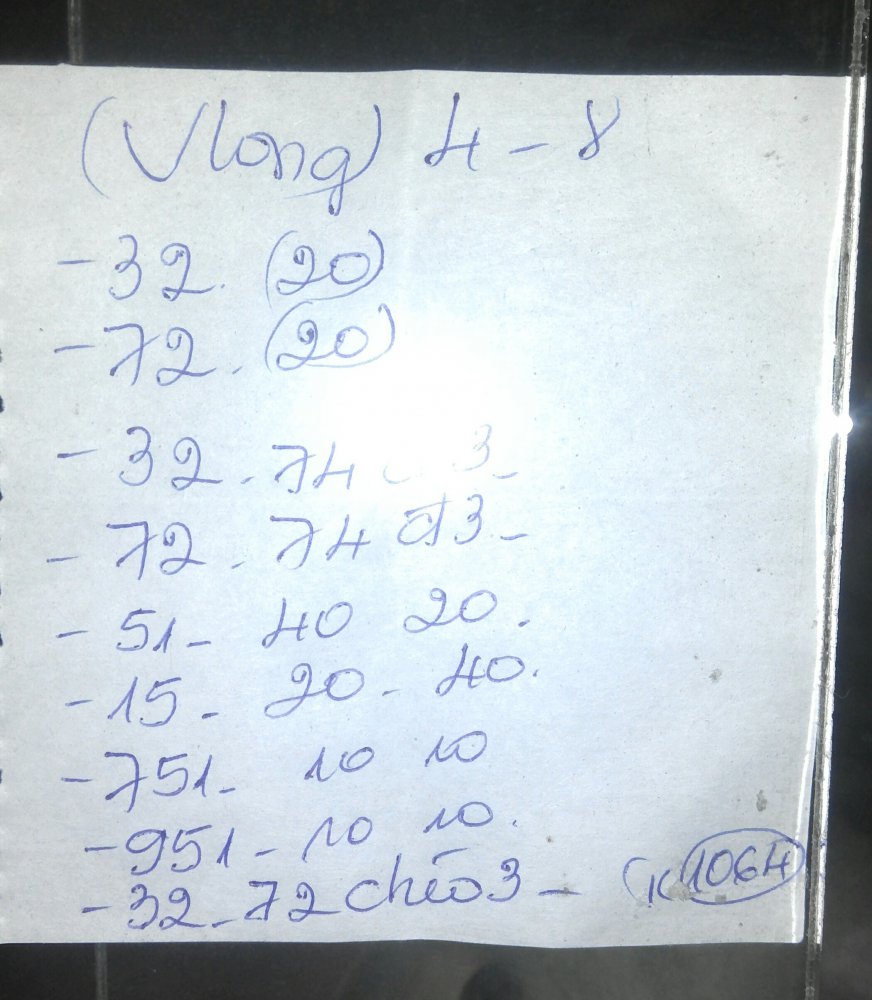 (Vlong) 4 - 8
- 32. (20)
- 72. (20)
- 32. 74 3 -
- 72. 74 đ 3 -
- 51 - 40 20.
- 15 - 20 - 40.
- 751 - 10 10
- 951 - 10 10.
- 32 - 72 chéo 3 - (K 1064)